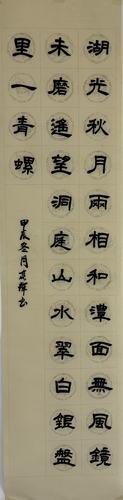 湖光秋月兩相和潭面無風鏡
未磨遙望洞庭山水翠白銀盤
里一青螺
甲辰冬月
書